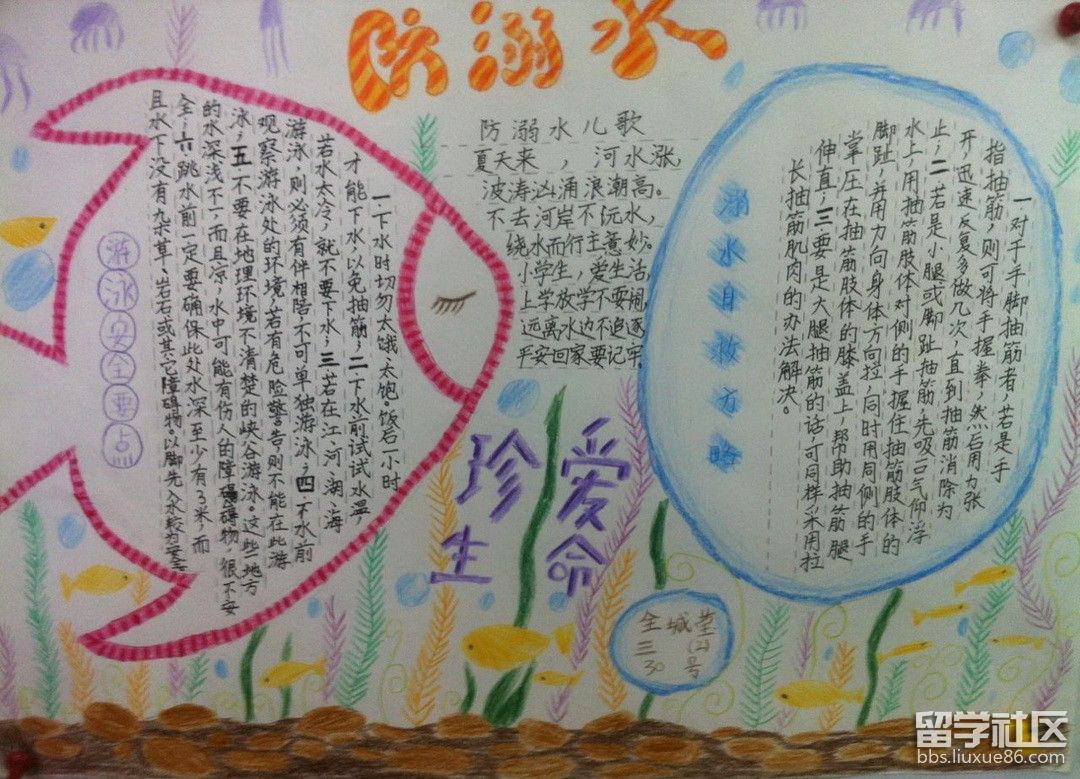 防溺水
游泳安全要点
一下水时切勿太饿、太饱。饭后一小时
才能下水,以免抽筋;二下水前试试水温,
若水太冷,就不要下水;三若在江、河、湖、海
游泳,则必须有伴相陪,不可单独游泳;四下水前
观察游泳处的环境,若有危险警告,则不能在此游
泳;五不要在地理环境不清楚的峡谷游泳。这些地方
的水深浅不一,而且凉,水中可能有伤人的障碍物,很不安
全;六跳水前一定要确保此处水深至少有3米,而
且水下没有杂草、岩石或其它障碍物。以脚先入水较为安全
防溺水儿歌
夏天来,河水涨,
波涛汹涌浪潮高。
不去河岸不沅水,
绕水而行主意妙。
小学生,爱生活,
上学放学不要闹,
远离水边不追逐,
平安回家要记牢。
珍爱
生命
溺水自救方略
一对于手脚抽筋者,若是手
指抽筋,则可将手握拳,然后用力张
开,迅速反复多做几次,直到抽筋消除为
止;二若是小腿或脚趾抽筋,先吸口气仰浮
水上,用抽筋肢体对侧的手握住抽筋肢体的
脚趾,并用力向身体方向拉,同时用同侧的手
掌压在抽筋肢体的膝盖上,帮助抽筋腿
伸直;三要是大腿抽筋的话,可同样采用拉
长抽筋肌肉的办法解决。
全城
三
30号
留学社区
bbs.liuxue86.com